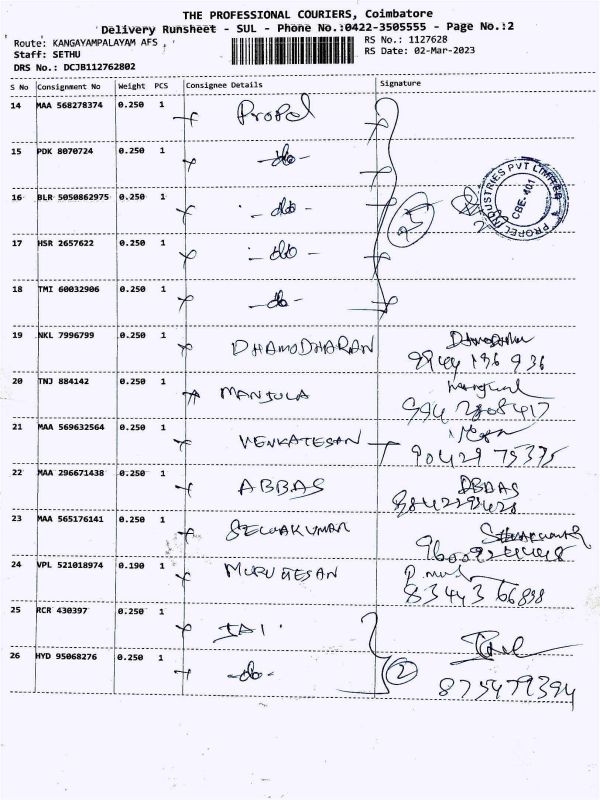 THE PROFESSIONAL COURIERS, Coimbatore
Delivery Runsheet - SUL - Phone No.:0422-3505555 - Page No.:2
Route: KANGAYAMPALAYAM AFS , RS No.: 1127628
Staff: SETHU RS Date: 02-Mar-2023
DRS No.: DCJB112762802
S No Consignment No Weight PCS Consignee Details Signature
14 MAA 568278374 0.250 1 Propel
15 PDK 8070724 0.250 1 -do-
PROPEL INDUSTRIES PVT LIMITED
CBE-401
16 BLR 5050862975 0.250 1 -do-
17 HSR 2657622 0.250 1 -do-
18 TMI 60032906 0.250 1 -do-
19 NKL 7996799 0.250 1 DHAMODHARAN
9944 136 936
20 TNJ 884142 0.250 1 MANJULA
21 MAA 569632564 0.250 1 VENKATESAN
90429 75375
22 MAA 296671438 0.250 1 ABBAS ABBAS
23 MAA 565176141 0.250 1 SELVAKUMAR
24 VPL 521018974 0.190 1 MURUGESAN
83443 66898
25 RCR 430397 0.250 1 JAI
26 HYD 95068276 0.250 1 -do- 2
875479394